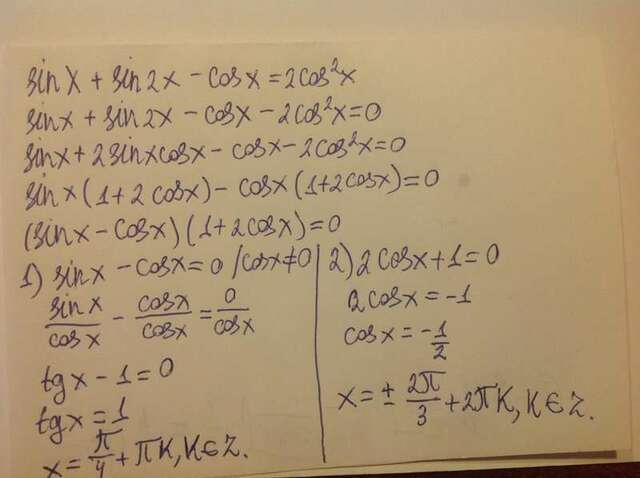 sin x + sin 2x - cos x = 2cos²x
sin x + sin 2x - cos x - 2cos²x = 0
sin x + 2 sin x cos x - cos x - 2cos²x = 0
sin x (1 + 2 cos x) - cos x (1 + 2 cos x) = 0
(sin x - cos x) (1 + 2 cos x) = 0
1) sin x - cos x = 0 / cos x ≠ 0
sin x / cos x - cos x / cos x = 0 / cos x
tg x - 1 = 0
tg x = 1
x = π/4 + πK, K ∈ Z.
2) 2 cos x + 1 = 0
2 cos x = -1
cos x = -1/2
x = ± 2π/3 + 2πK, K ∈ Z.